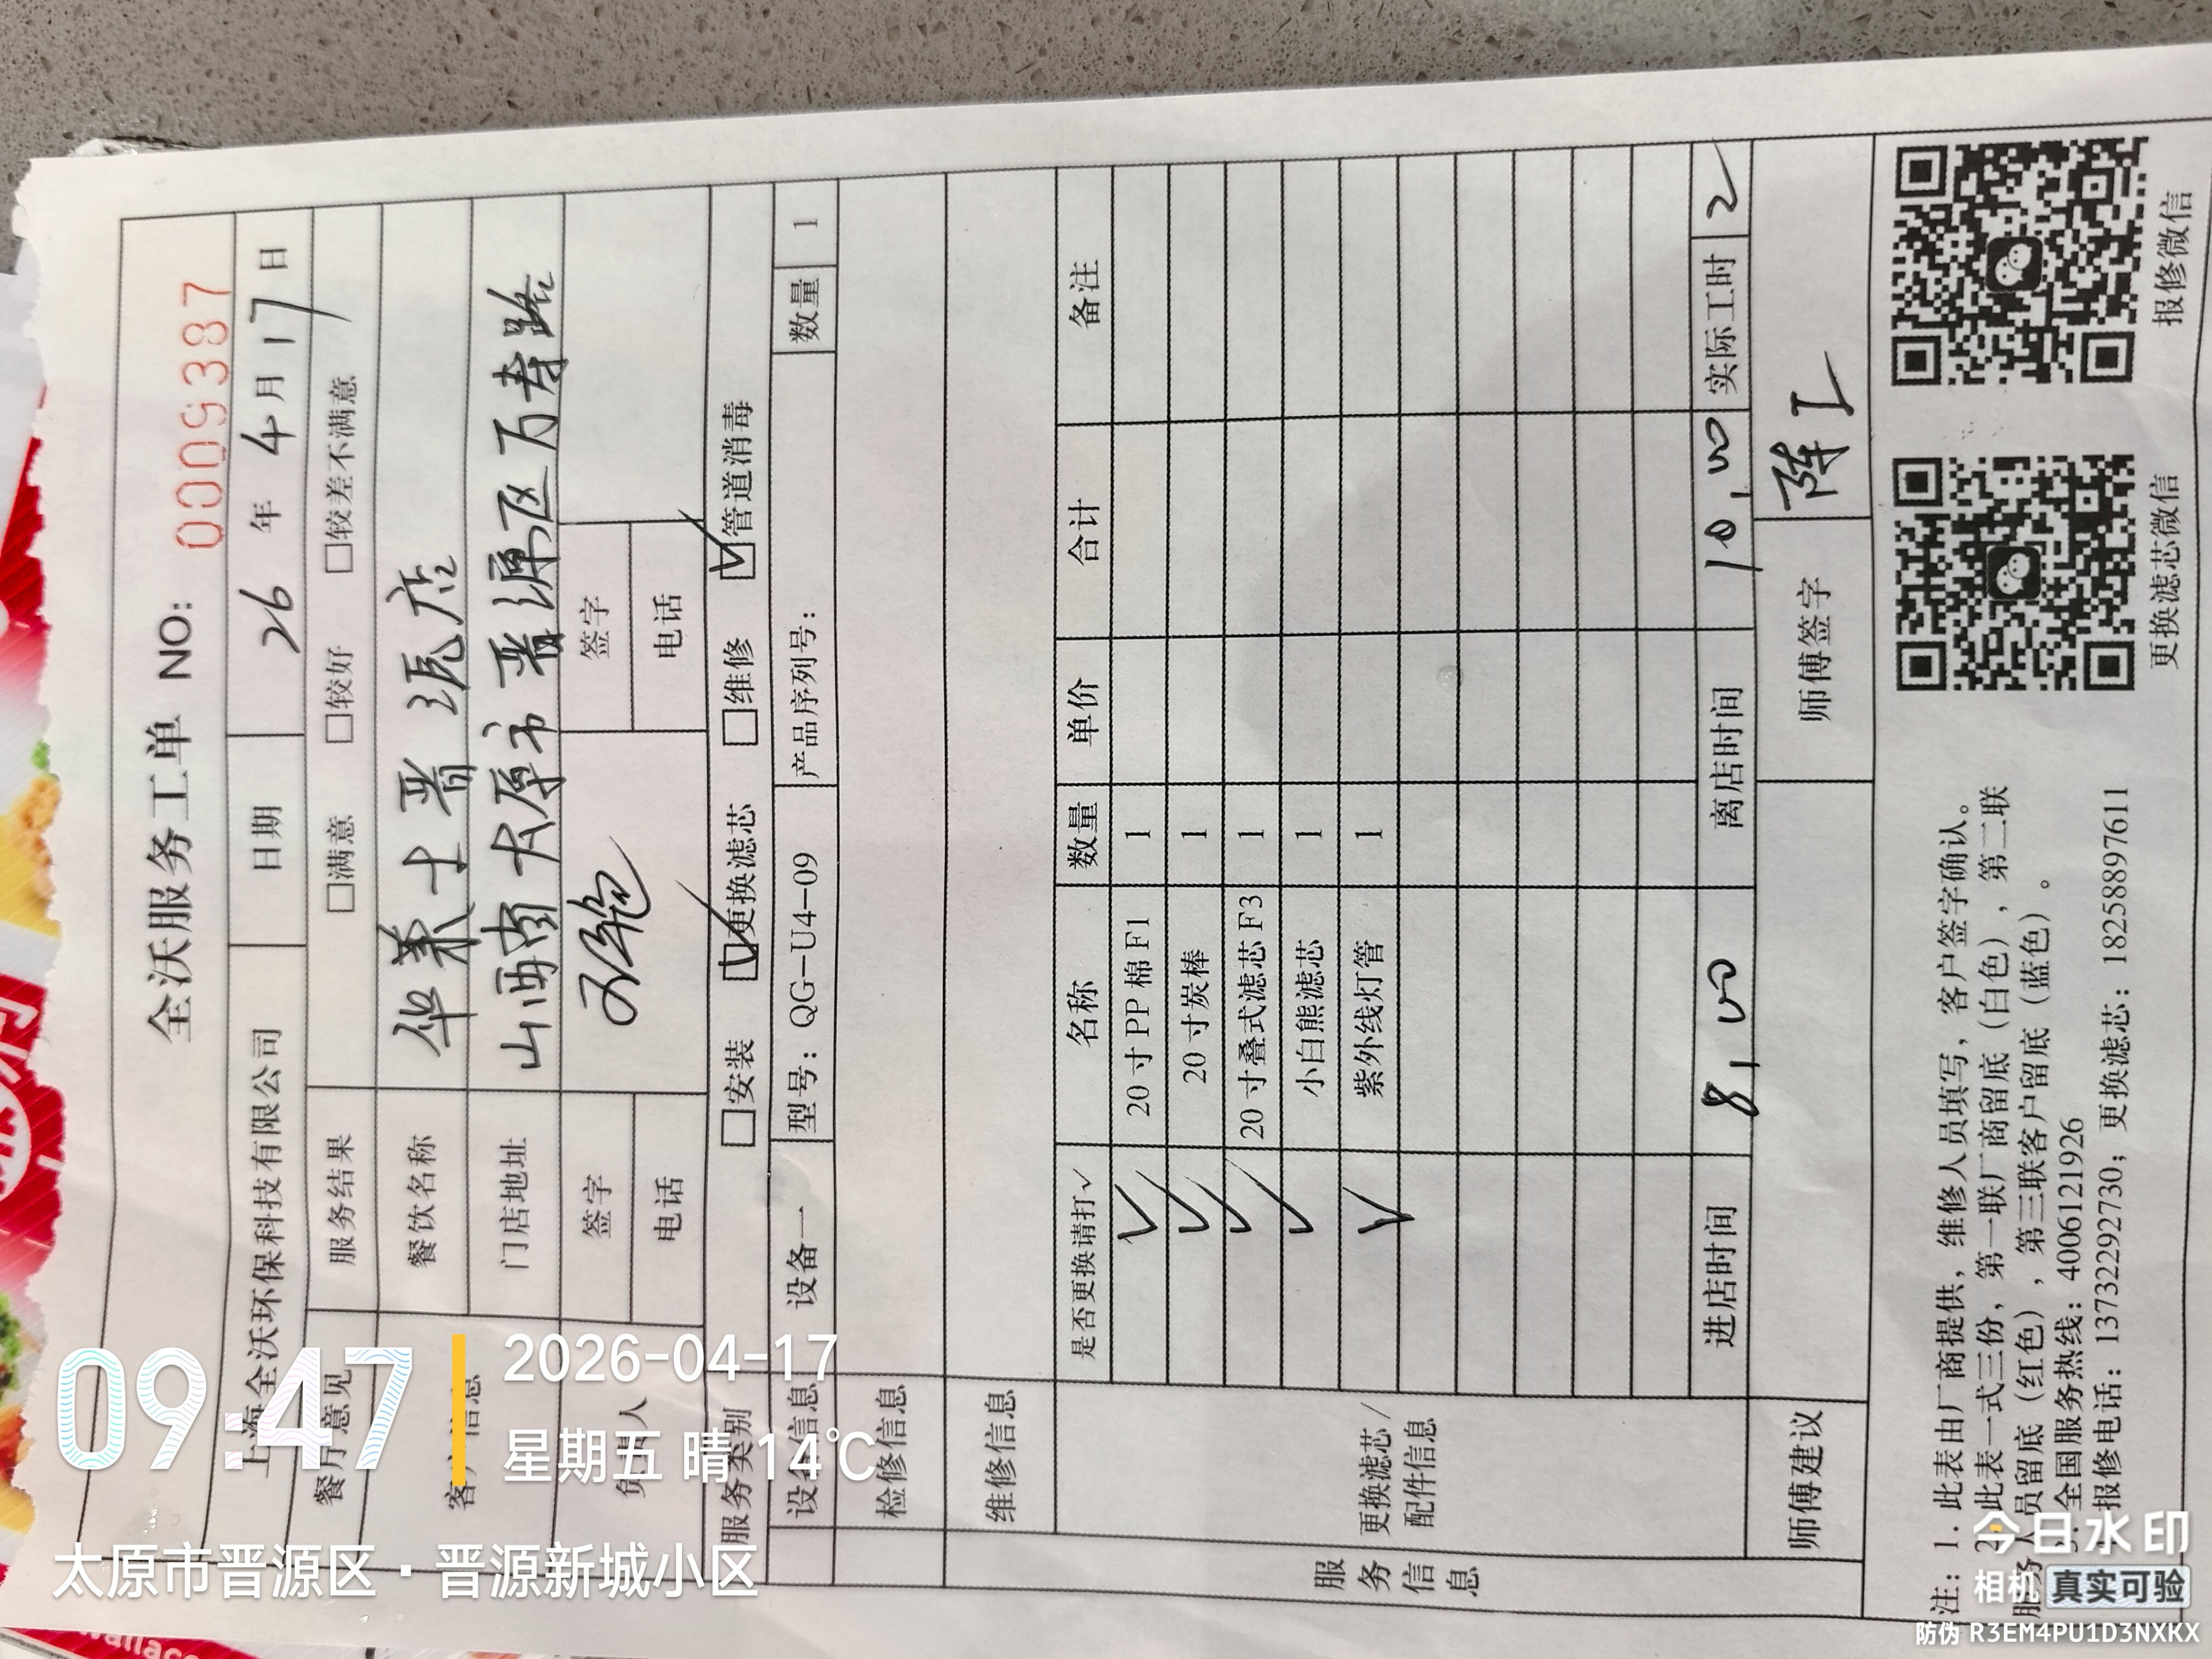 全沃服务工单 NO: 0009387
上海全沃环保科技有限公司 日期 26 年 4 月 17 日
餐厅意见 服务结果 □满意 □较好 □较差不满意
客户信息 餐饮名称 华莱士晋源店
门店地址 山西省太原市晋源区万寿路
负责人 签字 签字
电话 电话
服务类别 □安装 ☑更换滤芯 □维修 ☑管道消毒
设备信息 设备一 型号：QG-U4-09 产品序列号： 数量 1
检修信息
维修信息
服务信息
更换滤芯/配件信息
是否更换请打✓ 名称 数量 单价 合计 备注
✓ 20 寸 PP 棉 F1 1
✓ 20 寸炭棒 1
✓ 20 寸叠式滤芯 F3 1
✓ 小白熊滤芯 1
✓ 紫外线灯管 1
进店时间 8:00 离店时间 10:00 实际工时 2
师傅建议 师傅签字 陈工
注：1. 此表由厂商提供，维修人员填写，客户签字确认。
2. 此表一式三份，第一联厂商留底（白色），第二联
服务人员留底（红色），第三联客户留底（蓝色）。
3. 全国服务热线：4006121926
报修电话：13732292730；更换滤芯：18258897611
更换滤芯微信 报修微信
09:47
2026-04-17
星期五 晴 14℃
太原市晋源区·晋源新城小区
今日水印
相机 真实可验
防伪 R3EM4PU1D3NXKX